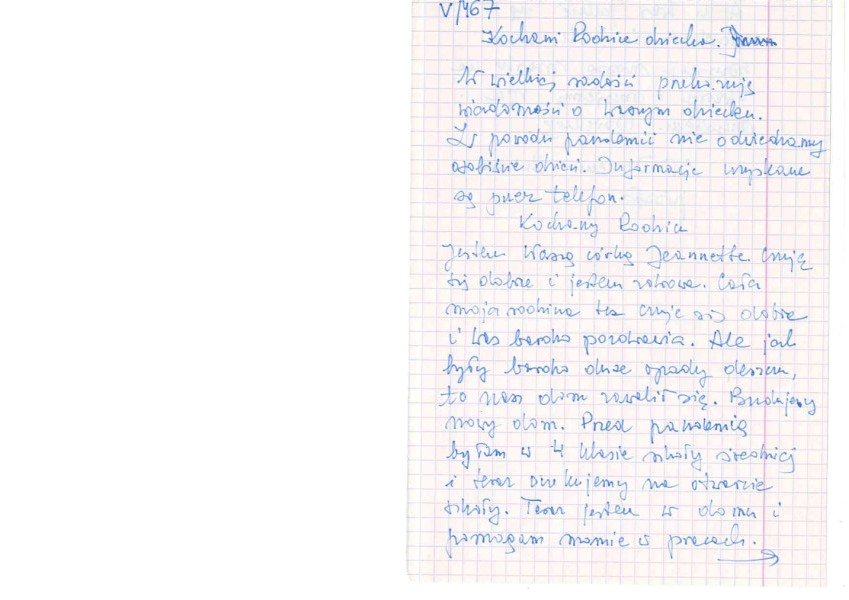 V/467
Kochani Rodzice dziecka.
W wielkiej radości przekazuję
wiadomości o Waszym dziecku.
Z powodu pandemii nie odwiedzamy
osobiście dzieci. Informacje uzyskane
są przez telefon.
Kochany Rodzice
Jestem Waszą córką Jeannette. Czuję
się dobrze i jestem zdrowa. Cała
moja rodzina też czuje się dobrze
i Was bardzo pozdrawia. Ale jak
były bardzo duże opady deszczu,
to nasz dom zawalił się. Budujemy
nowy dom. Przed pandemią
byłam w 4 klasie szkoły średniej
i teraz oczekujemy na otwarcie
szkoły. Teraz jestem w domu i
pomagam mamie w pracach.